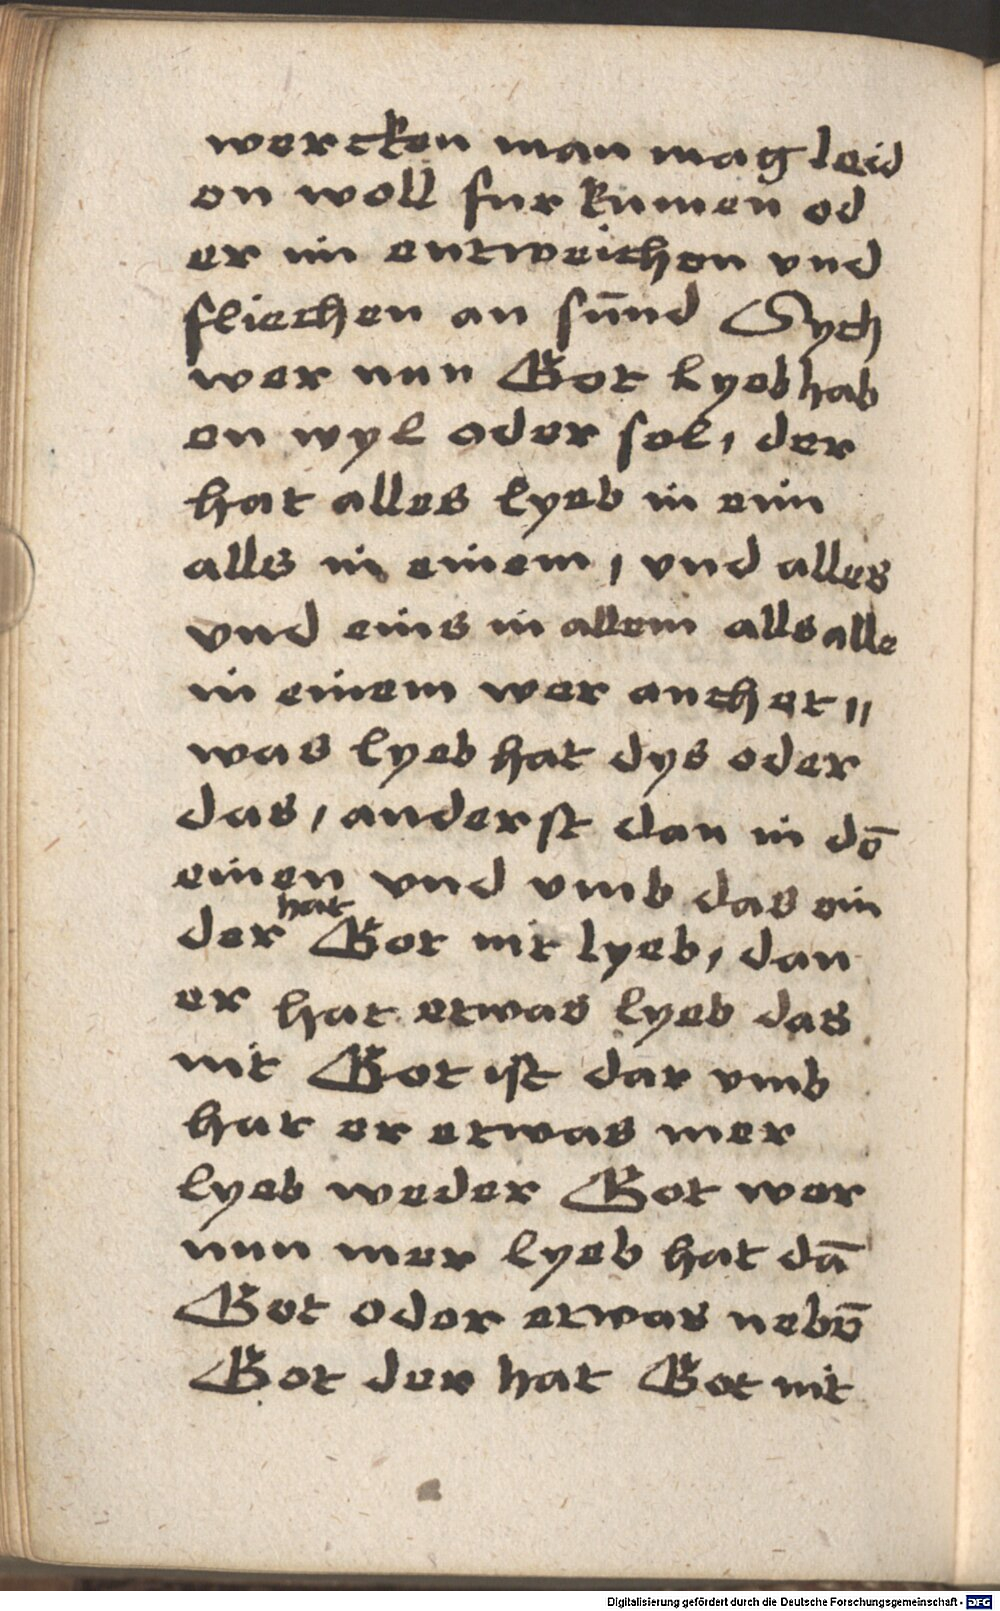 wercken man mag leid
en woll fur kumen od
er im entweichen vnd
fliechen an sūnd Sych
wer nun Got lyeb hab
en wyl oder sol, der
hat alles lyeb in eim
alls in einem, vnd alles
vnd eins in allem alls alle
in einem wer anchet //
was lyeb hat dys oder
das, anderst dan in dē
einen vnd vmb das ein
der hat Got nit lyeb, dan
er hat etwas lyeb das
nit Got ist dar vmb
hat er etwas mer
lyeb weder Got wer
nun mer lyeb hat dā
Got oder etwas nebē
Got der hat Got nit
Digitalisierung gefördert durch die Deutsche Forschungsgemeinschaft - DFG